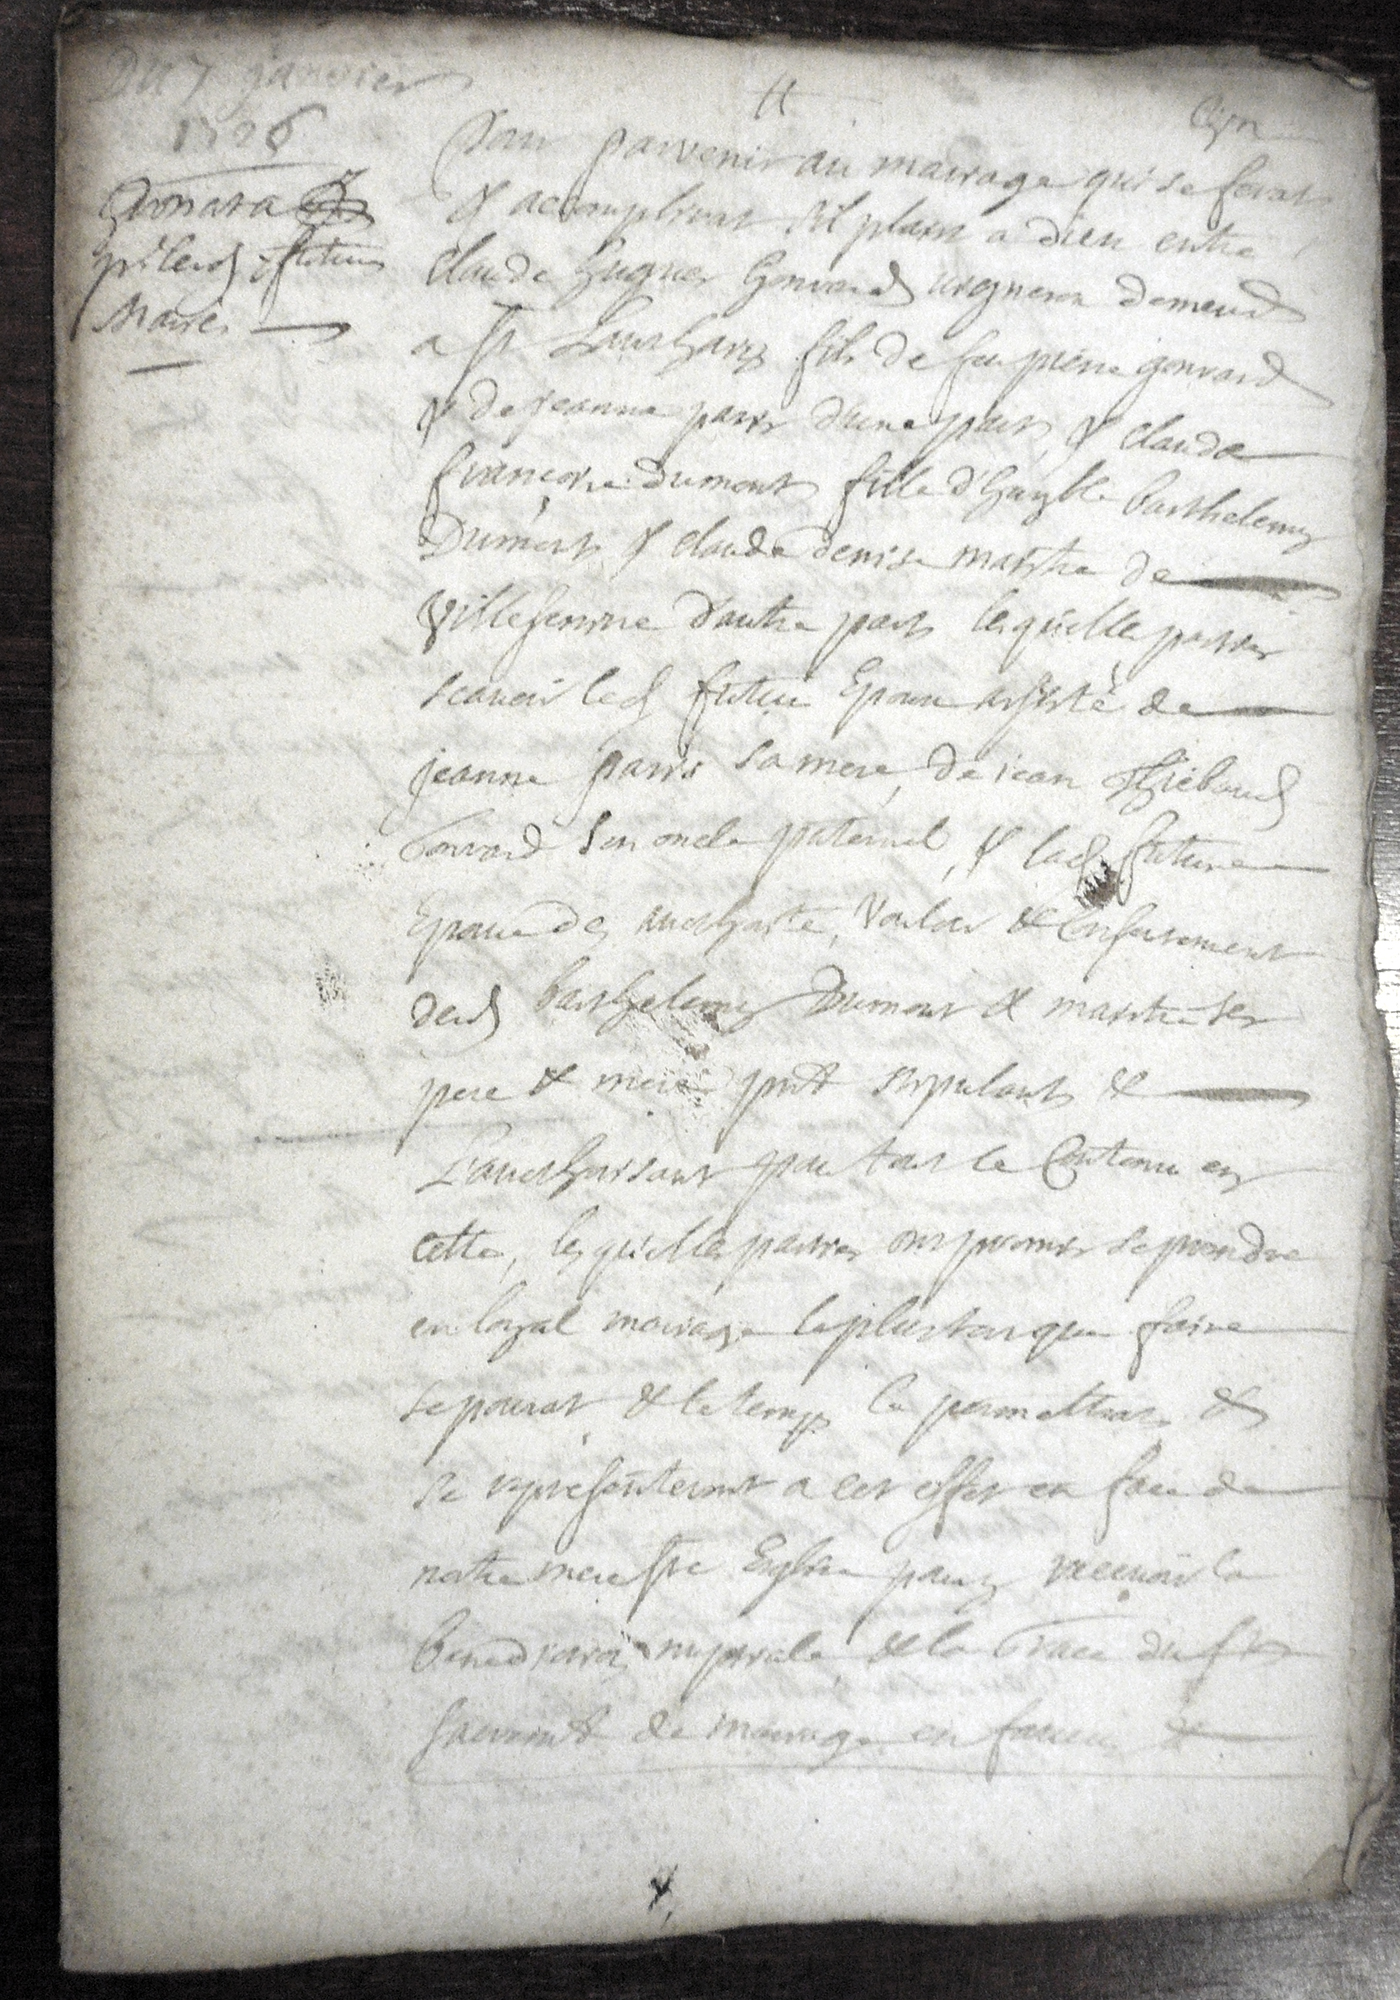 Du 7 janvier
1726
futurs
Mariés
Pour parvenir au mariage qui se ferat
& acomplirat s'il plaist a dieu entre
Claude hugues Gonvard vigneron demeurd
a St fils de feu pierre gonvard
& de jeanne paris d'une part, & claude
françoise dumont fille d'hugble barthelemy
Dumont & claude denise maitre de
d'autre part lesquelle parties
scavoir led futur Epoux assisté de
jeanne paris sa mere, de jean Thiebaud
Gonvard son oncle paternel, & lad future
Epouse de, vouloir & consentement
desd barthelemy Dumont & maitre ses
pere & mere pnt stipulant &
L'aucthorisant pour tout le Contenu en
cette, lesquelle parties ont promis se prendre
en loyal mariage le plustot que faire
se pourat & le temp le permettrat &
se representeront a cet effet en face de
notre mere ste Eglise pour y recevoir la
benediction nuptiale & la Grace du st
sacremt de mariage en faveur &